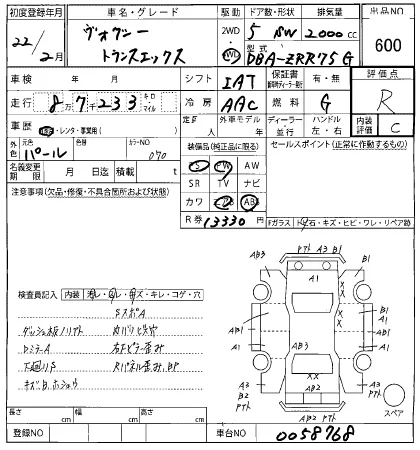 初度登録年月 車名・グレード 駆動 ドア数・形状 排気量 出品NO
22/2月 ヴォクシー トランスエックス 2WD 4WD 5 SW 2000cc 600
型式 DBA-ZRR75G
車検 年 月 シフト IAT 保証書 有・無 評価点
走行 8万7233 キロ・マイル 冷房 AAC 燃料 G R
車歴 自家・レンタ・事業用( ) 定員 人 外車モデル 年 ディーラー 並行 ハンドル 左・右 内装評価 C
色 元色 パール 色替 カラーNO 070 装備品(純正品に限る) セールスポイント(正常に動作するもの)
名義変更期限 月 日迄 積載 t PS PW AW
注意事項(欠品・修復・不具合箇所および状態) SR TV ナビ
カワ エアB ABS
R券 13330円 Fガラス トビ石・キズ・ヒビ・ワレ・リペア跡
検査員記入 内装 汚レ・キズ・キレ・コゲ・穴
SスポA
ダッシュ板ノリアト
DミラーA
下廻りS Rパネル歪み
AB3 アト A3 B1
A1 B1
A1 X X
AB1 A1 AB1
AB3
A3 XX A3
アト AB2 アト
AB2 アト スペア
長さ cm 幅 cm 高さ cm
登録NO 車台NO 0058768